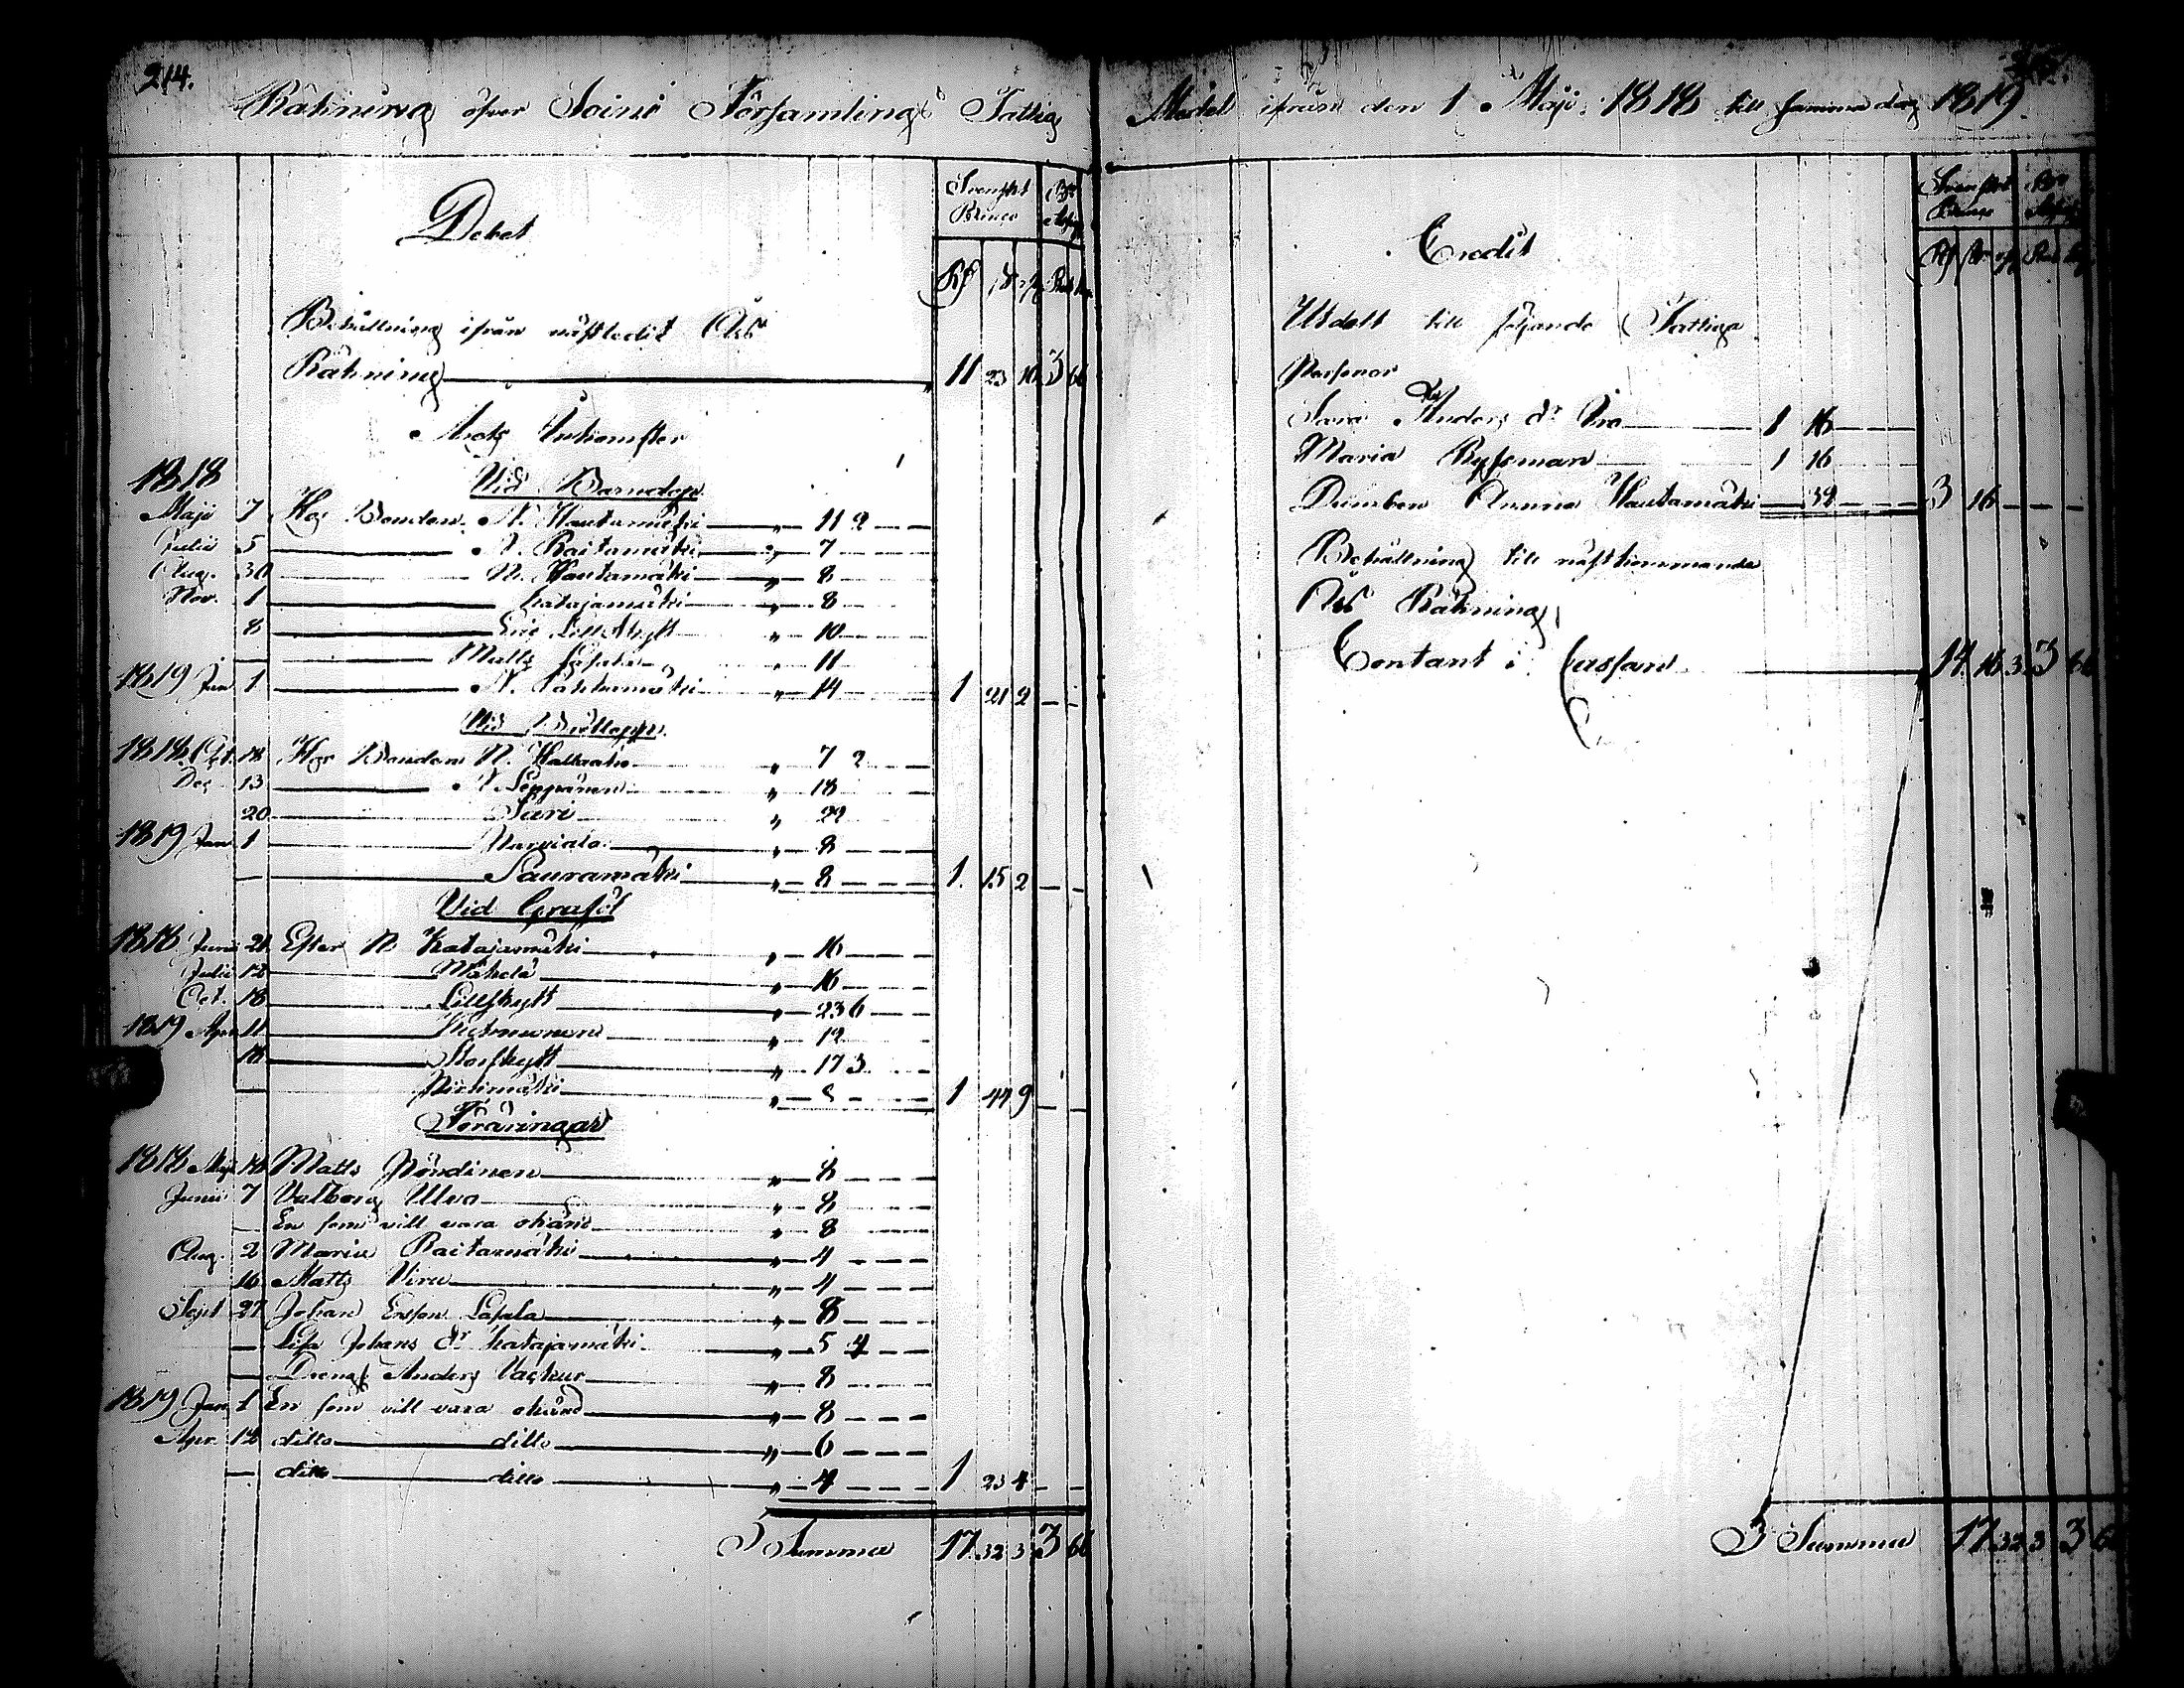 214.
Räkning öfver Soini Församlings Fattig
Debet
Svenskt Banco
Rd s. r.
Behållning ifrån näst ledit Års
Räkning 11 23 10 3 66
Årets Inkomster
1818 Vid Barndop
Maji 7 Hos Bonden N. Hautamäki „ 11 2
Julii 5 N. Raitamäki „ 7
Aug. 30 N. Hautamäki „ 8
Nov. 1 Katajamäki „ 8
8 Eric Lillskytt „ 10
— Matts „ 11
1819 Jan 1 N. „ 14 1 21 2
Vid Bröllopp
1818 Oct. 18 Hos Bonden N. „ 7 2
Dec 13 N Seppänen „ 18
20 Sari „ 22
1819 Jan 1 „ 8
— Sauramäki „ 8 1 15 2
Vid Graföl
1818 Junii 21 Efter N. Katajamäki „ 16
Julii 12 Mäkelä „ 16
Oct. 18 Lillskytt „ 23 6
1819 Apr. 11 „ 12
18 Storskytt „ 17 3
— „ 8 1 44 9
Föräringar
1818 Maji 18 Matts Pöndinen „ 8
Junii 7 Valborg Ulvo „ 8
— En som vill vara okänd „ 8
Aug. 2 Maria Raitamäki „ 4
16 Matts Vira „ 4
Sept 27 Johan Ersson Lasala „ 8
— Lisa Johans dr Katajamäki „ 5 4
— Dreng Anders Vackur „ 8
1819 Jan 1 En som vill vara okänd „ 8
Apr. 12 ditto ditto „ 6
— ditto ditto „ 4 1 23 4
Summa 17 32 3 3 66
Medel ifrån den 1 Maji 1818 till samma dag 1819.
Credit
Svenskt Banco
Utdelt till följande Fattiga
Personer
Anders dr 1 16
Maria Ryssman 1 16
Dumben Anna Hautamäki 32 3 16
Behållning till nästkommande
Års Räkning
Contant i Cassan 14 16 3 3 66
Summa 17 32 3 3 66